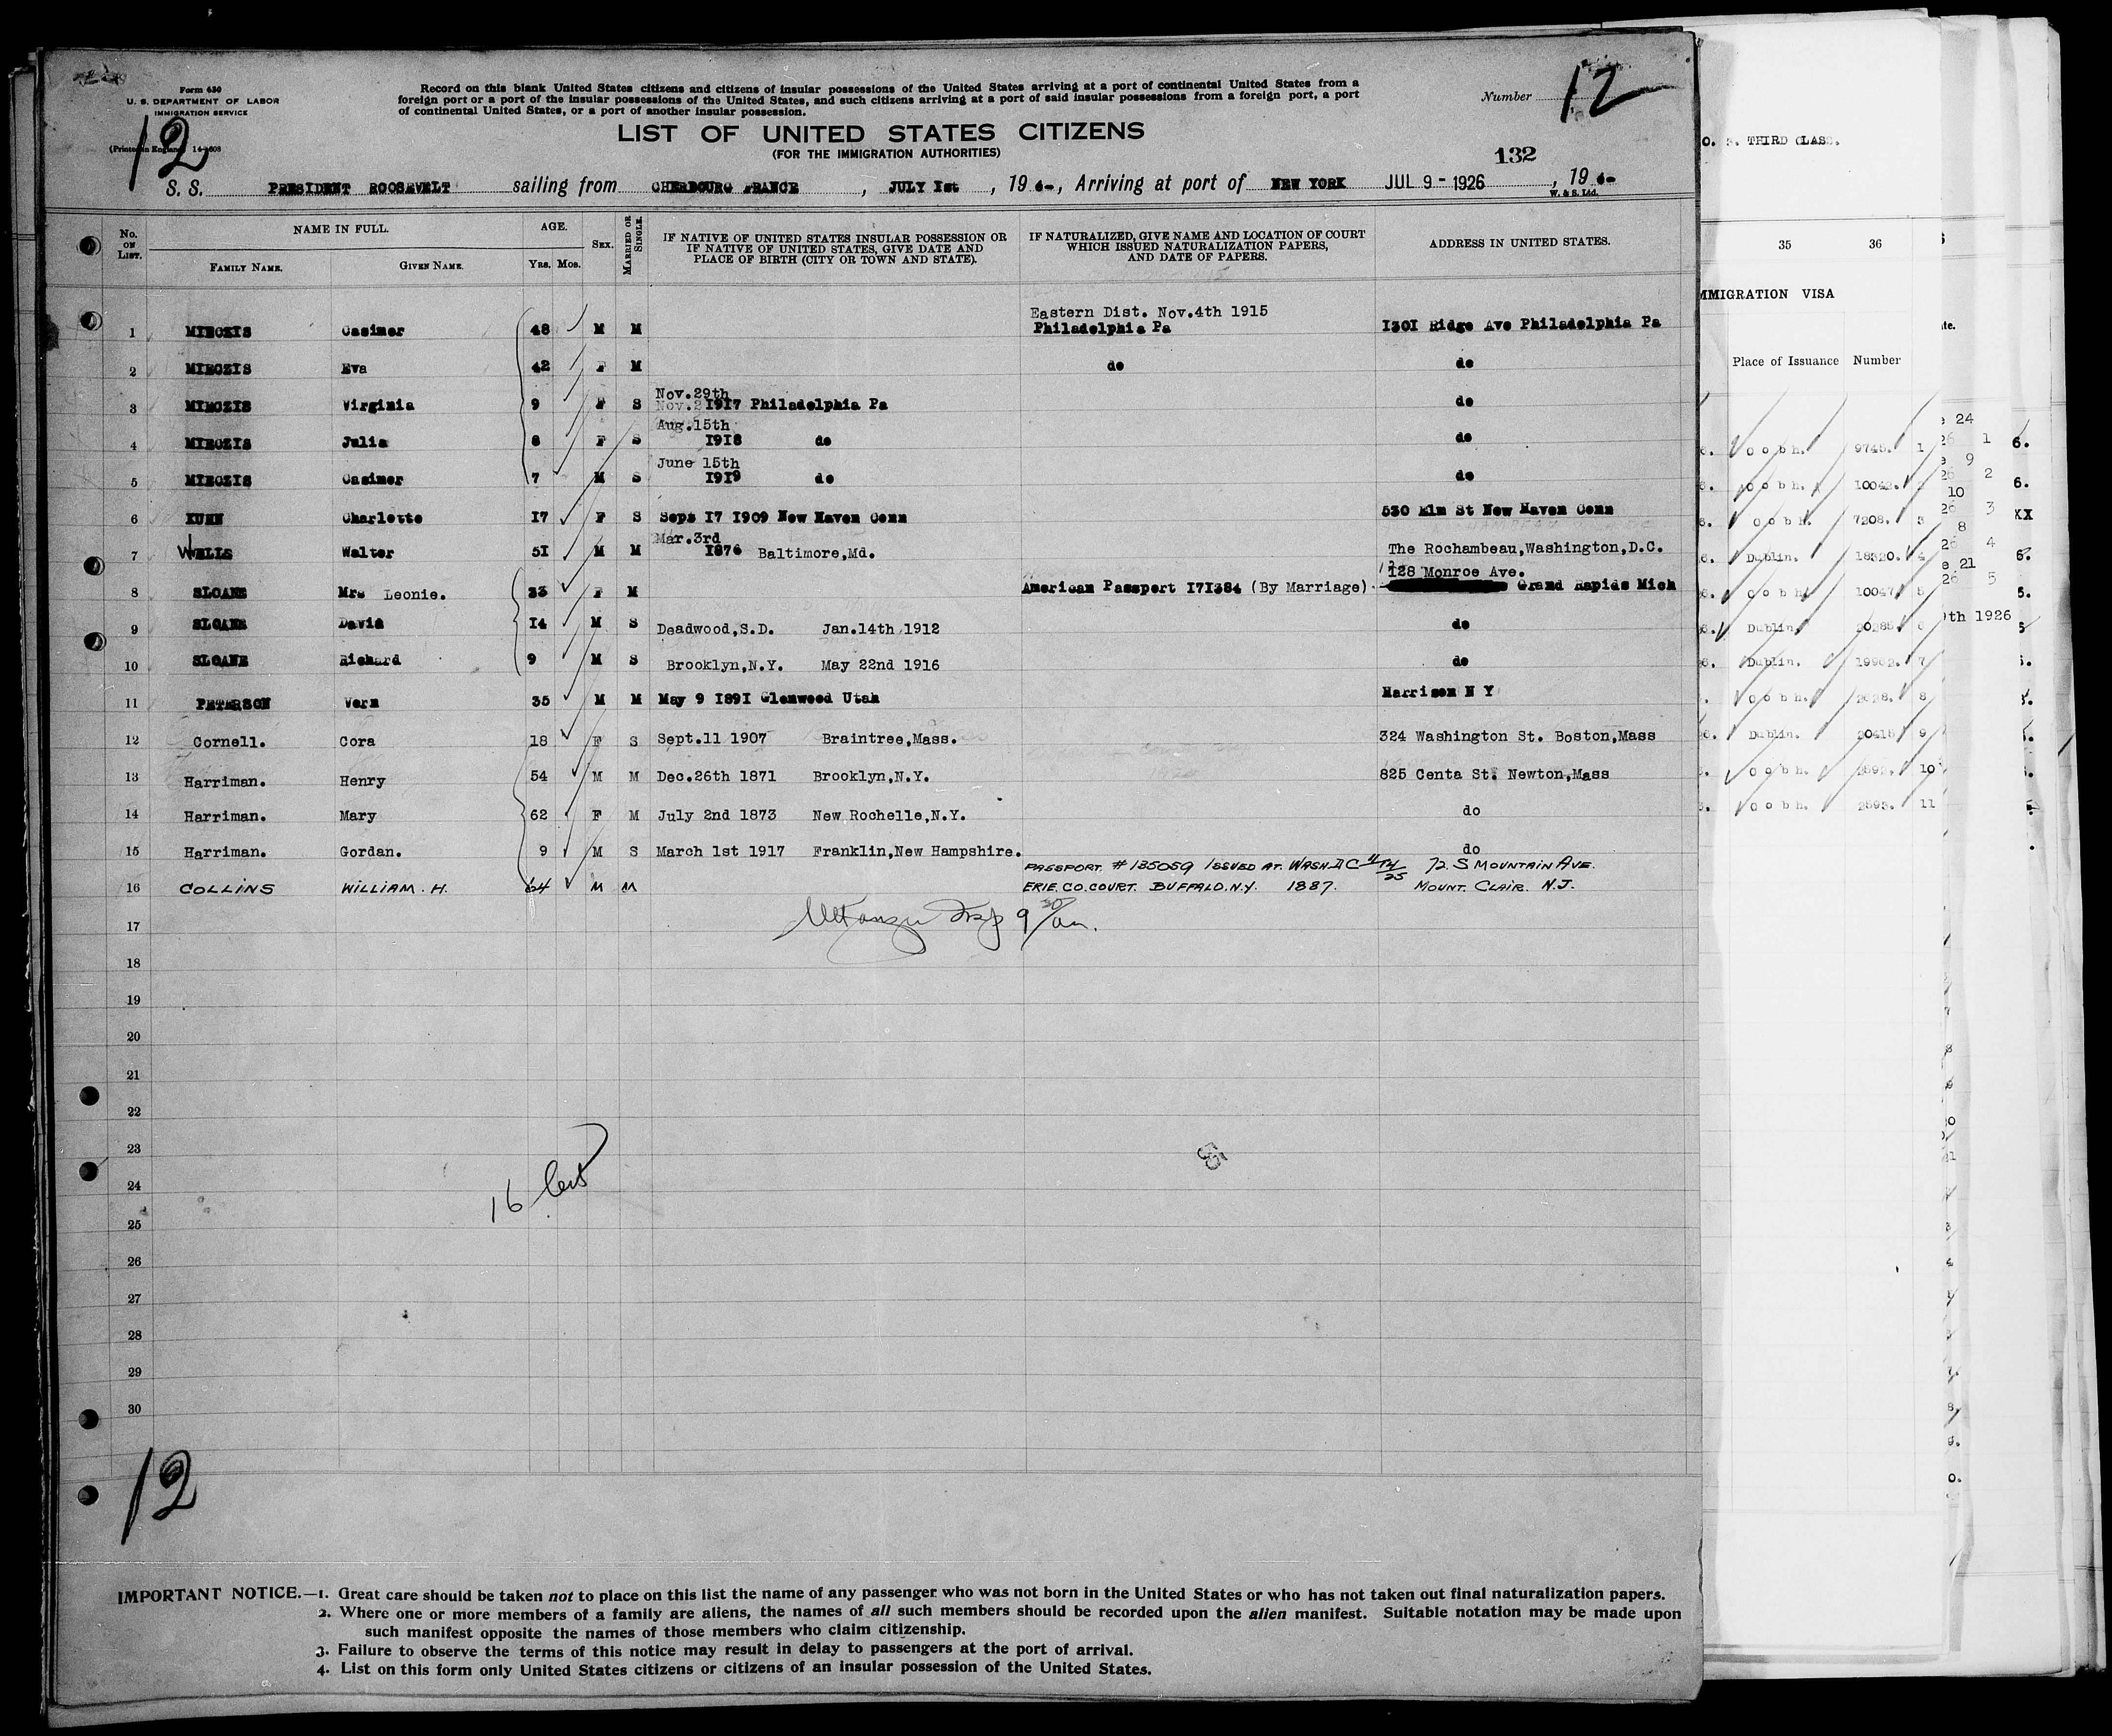 Form 630
U. S. DEPARTMENT OF LABOR
IMMIGRATION SERVICE
(Printed in England) 14-1608
12
Record on this blank United States citizens and citizens of insular possessions of the United States arriving at a port of continental United States from a
foreign port or a port of the insular possessions of the United States, and such citizens arriving at a port of said insular possessions from a foreign port, a port
of continental United States, or a port of another insular possession.
Number 12
LIST OF UNITED STATES CITIZENS
(FOR THE IMMIGRATION AUTHORITIES)
132
S. S. PRESIDENT ROOSEVELT sailing from CHERBOURG FRANCE, JULY 1st, 19 , Arriving at port of NEW YORK JUL 9 - 1926, 19
W. & S. Ltd.
No. ON LIST. NAME IN FULL. AGE. SEX. MARRIED OR SINGLE. IF NATIVE OF UNITED STATES INSULAR POSSESSION OR IF NATIVE OF UNITED STATES, GIVE DATE AND PLACE OF BIRTH (CITY OR TOWN AND STATE). IF NATURALIZED, GIVE NAME AND LOCATION OF COURT WHICH ISSUED NATURALIZATION PAPERS, AND DATE OF PAPERS. ADDRESS IN UNITED STATES.
FAMILY NAME. GIVEN NAME. YRS. MOS.
Eastern Dist. Nov.4th 1915
1 Casimer 48 M M Philadelphia Pa 1301 Ridge Ave Philadelphia Pa
2 Eva 42 F M do do
Nov.29th
3 Virginia 9 F S 1917 Philadelphia Pa do
Aug.15th
4 Julia 8 F S 1918 do do
June 15th
5 Casimer 7 M S 1919 do do
6 KUHN Charlotte 17 F S Sept 17 1909 New Haven Conn 530 Elm St New Haven Conn
Mar.3rd
7 WELLS Walter 51 M M 1876 Baltimore,Md. The Rochambeau,Washington,D.C.
128 Monroe Ave.
8 SLOANE Mrs Leonie. 33 F M American Passport 171384 (By Marriage) Grand Rapids Mich
9 SLOANE David 14 M S Deadwood,S.D. Jan.14th 1912 do
10 SLOANE Richard 9 M S Brooklyn,N.Y. May 22nd 1916 do
11 PETERSON Vern 35 M M May 9 1891 Glenwood Utah Harrison N Y
12 Cornell. Cora 18 F S Sept.11 1907 Braintree,Mass. 324 Washington St. Boston,Mass
13 Harriman. Henry 54 M M Dec.26th 1871 Brooklyn,N.Y. 825 Centa St. Newton,Mass
14 Harriman. Mary 62 F M July 2nd 1873 New Rochelle,N.Y. do
15 Harriman. Gordan. 9 M S March 1st 1917 Franklin,New Hampshire. do
PASSPORT # 135059 ISSUED AT WASH D C 72 S MOUNTAIN AVE.
16 COLLINS WILLIAM. H. 64 M M ERIE. CO. COURT. BUFFALO. N.Y. 1887. MOUNT. CLAIR. N.J.
17
18
19
20
21
22
23
24
25
26
27
28
29
30
16
12
IMPORTANT NOTICE.—1. Great care should be taken not to place on this list the name of any passenger who was not born in the United States or who has not taken out final naturalization papers.
2. Where one or more members of a family are aliens, the names of all such members should be recorded upon the alien manifest. Suitable notation may be made upon
such manifest opposite the names of those members who claim citizenship.
3. Failure to observe the terms of this notice may result in delay to passengers at the port of arrival.
4. List on this form only United States citizens or citizens of an insular possession of the United States.
THIRD CLASS.
35 36
MMIGRATION VISA
Place of Issuance Number
Cobh. 9745. 1
Cobh. 10042. 2
Cobh. 7208. 3
Dublin. 18320. 4
Cobh. 10047. 5
Dublin. 20285. 6
Dublin. 19902. 7
Cobh. 2628. 8
Dublin. 20415 9
Cobh. 2592. 10
Cobh. 2593. 11